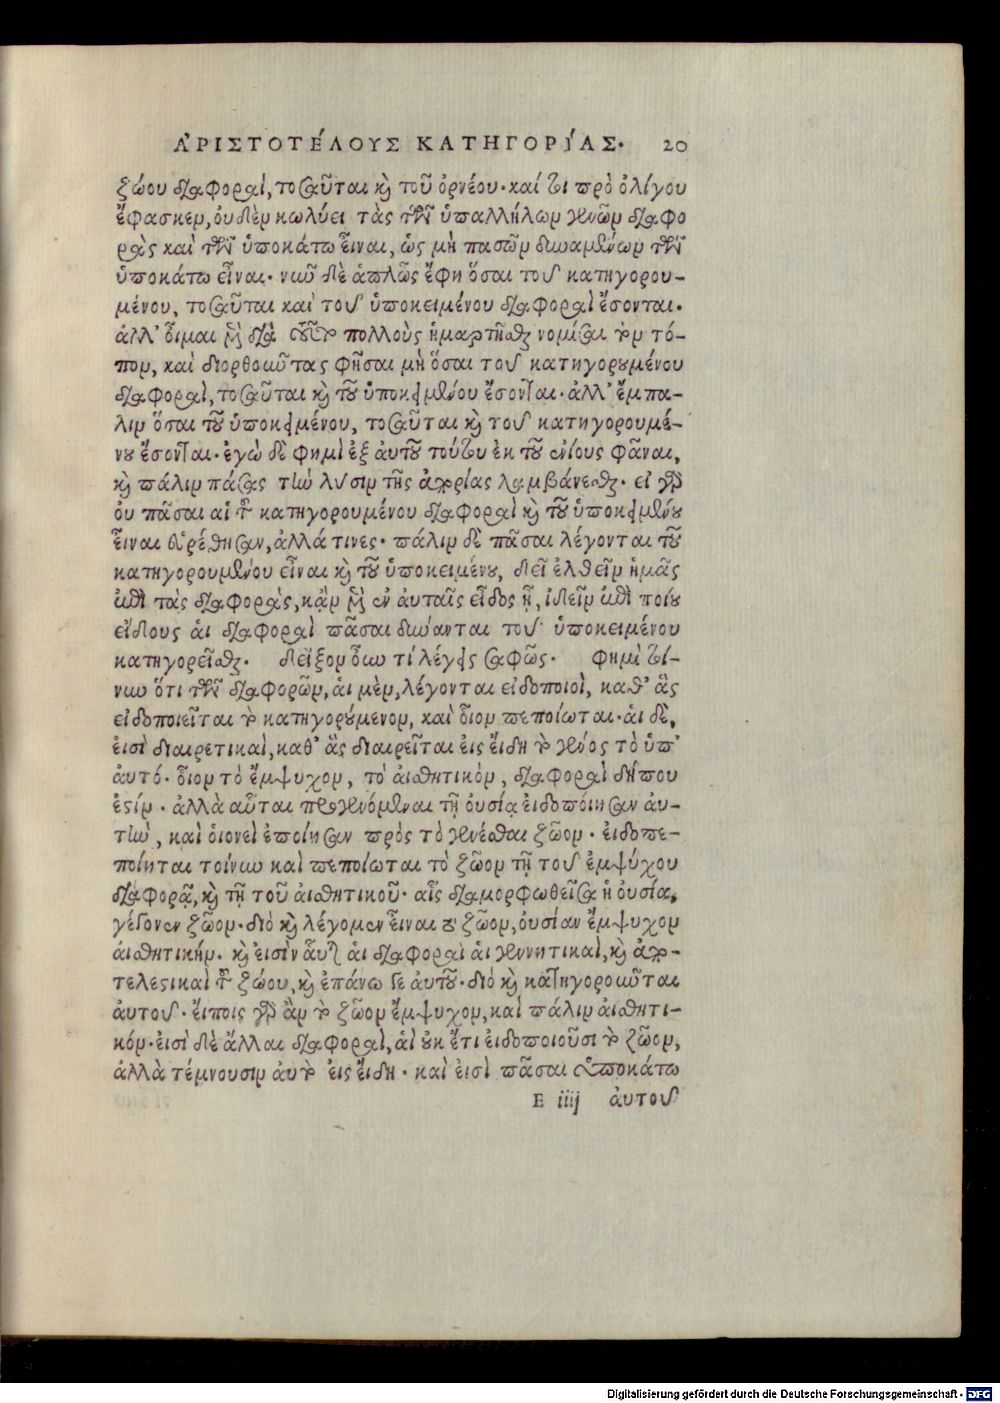 ἈΡΙΣΤΟΤΈΛΟΥΣ ΚΑΤΗΓΟΡΊΑΣ· 20
ζώου διαφοραὶ, τοσαῦται καὶ τοῦ ὀρνέου· καί τοι πρὸ ὀλίγου
ἔφασκεν, οὐδὲν κωλύει τὰς τῶν ὑπαλλήλων γενῶν διαφο
ρὰς καὶ τῶν ὑποκάτω εἶναι, ὡς μὴ πασῶν δυναμένων τῶν
ὑποκάτω εἶναι· νῦν δὲ ἁπλῶς ἔφη ὅσαι τοῦ κατηγορου-
μένου, τοσαῦται καὶ τοῦ ὑποκειμένου διαφοραὶ ἔσονται·
ἀλλ' οἶμαι μὴ διὰ τοῦτο πολλοὺς ἡμαρτῆσθαι νομίσαι τὸν τό-
πον, καὶ διορθοῦντας φῆσαι μὴ ὅσαι τοῦ κατηγορουμένου
διαφοραὶ, τοσαῦται καὶ τοῦ ὑποκειμένου ἔσονται· ἀλλ' ἔμπα-
λιν ὅσαι τοῦ ὑποκειμένου, τοσαῦται καὶ τοῦ κατηγορουμέ-
νου ἔσονται· ἐγὼ δὲ φημὶ ἐξ αὐτοῦ τούτου ἐκ τοῦ ἐνίους φᾶναι,
καὶ πάλιν πάσας τὴν λύσιν τῆς ἀπορίας λαμβάνεσθαι· εἰ γὰρ
οὐ πᾶσαι αἱ τοῦ κατηγορουμένου διαφοραὶ καὶ τοῦ ὑποκειμένου
εἶναι εὑρέθησαν, ἀλλά τινες· πάλιν δὲ πᾶσαι λέγονται τοῦ
κατηγορουμένου εἶναι καὶ τοῦ ὑποκειμένου, δεῖ ἐλθεῖν ἡμᾶς
ἐπὶ τὰς διαφορὰς, κἂν μὴ ἐν αὐταῖς εἶδος ᾖ, ἰδεῖν ἐπὶ ποίου
εἴδους αἱ διαφοραὶ πᾶσαι δύνανται τοῦ ὑποκειμένου
κατηγορεῖσθαι· δεῖξον οὖν τί λέγεις σαφῶς· φημὶ τοί-
νυν ὅτι τῶν διαφορῶν, αἱ μὲν, λέγονται εἰδοποιοὶ, καθ' ἃς
εἰδοποιεῖται τὸ κατηγορούμενον, καὶ οἷον πεποίωται· αἱ δὲ,
εἰσὶ διαιρετικαὶ, καθ' ἃς διαιρεῖται εἰς εἴδη τὸ γένος τὸ ὑπ'
αὐτό· οἷον τὸ ἔμψυχον, τὸ αἰσθητικὸν, διαφοραὶ δήπου
ἐσίν· ἀλλὰ αὗται προσγενόμεναι τῇ οὐσίᾳ εἰδοποίησαν αὐ-
τὴν, καὶ οἱονεὶ ἐποίησαν πρὸς τὸ γενέσθαι ζῶον· εἰδοπε-
ποίηται τοίνυν καὶ πεποίωται τὸ ζῶον τῇ τοῦ ἐμψύχου
διαφορᾷ, καὶ τῇ τοῦ αἰσθητικοῦ· αἷς διαμορφωθεῖσα ἡ οὐσία,
γέγονεν ζῶον· διὸ καὶ λέγομεν εἶναι τὸ ζῶον, οὐσίαν ἔμψυχον
αἰσθητικήν· καὶ εἰσὶν αὗται αἱ διαφοραὶ αἱ γεννητικαὶ, καὶ ἀπο-
τελεστικαὶ τοῦ ζώου, καὶ ἐπάνω γε αὐτοῦ· διὸ καὶ κατηγοροῦνται
αὐτοῦ· εἴποις γὰρ ἂν τὸ ζῶον ἔμψυχον, καὶ πάλιν αἰσθητι-
κόν· εἰσὶ δὲ ἄλλαι διαφοραὶ, αἱ οὐκ ἔτι εἰδοποιοῦσι τὸ ζῶον,
ἀλλὰ τέμνουσιν αὐτὸ εἰς εἴδη· καὶ εἰσὶ πᾶσαι ὑποκάτω
E iiij αὐτοῦ
Digitalisierung gefördert durch die Deutsche Forschungsgemeinschaft - DFG